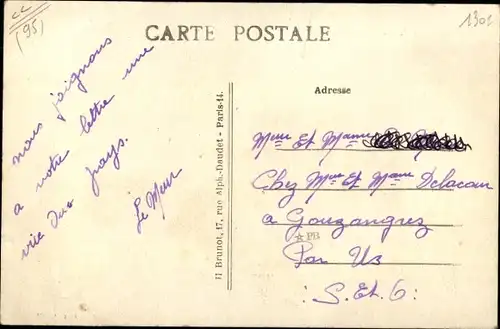 cc
(95)
1301
CARTE POSTALE
nous joignons
a votre lettre une
vue du pays.
Le Mur
H Brunot, 17, rue Alph.-Daudet - Paris-14.
Adresse
Meur Et Mame
Chez Meur Et Mame Delacour
a Gouzangrez
☆ PB
Par Us
S. Et. O :